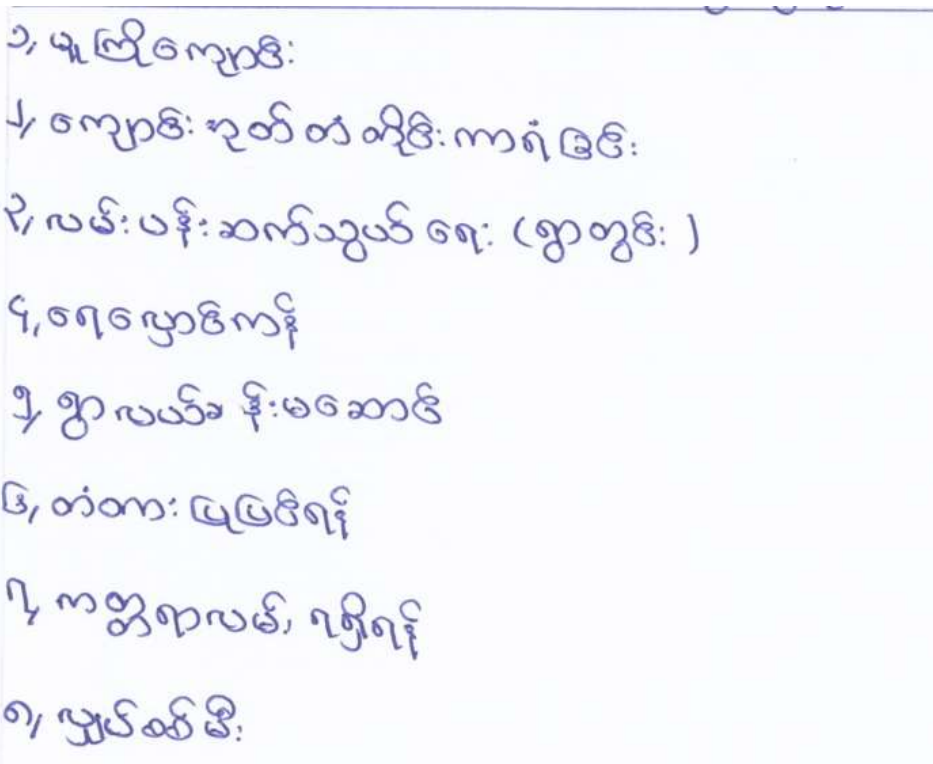 ၁, မူကြိုကျောင်း
၂, ကျောင်းဝုတ်တံတိုင်းကာရံခြင်း
၃, လမ်းပန်းဆက်သွယ်ရေး (ရွာတွင်း)
၄, ရေလှောင်ကန်
၅, ရွာလယ်ခန်းမဆောင်
၆, တံတားပြုပြင်ရန်
၇, ကတ္တရာလမ်း ရရှိရန်
၈, လျှပ်စစ်မီး